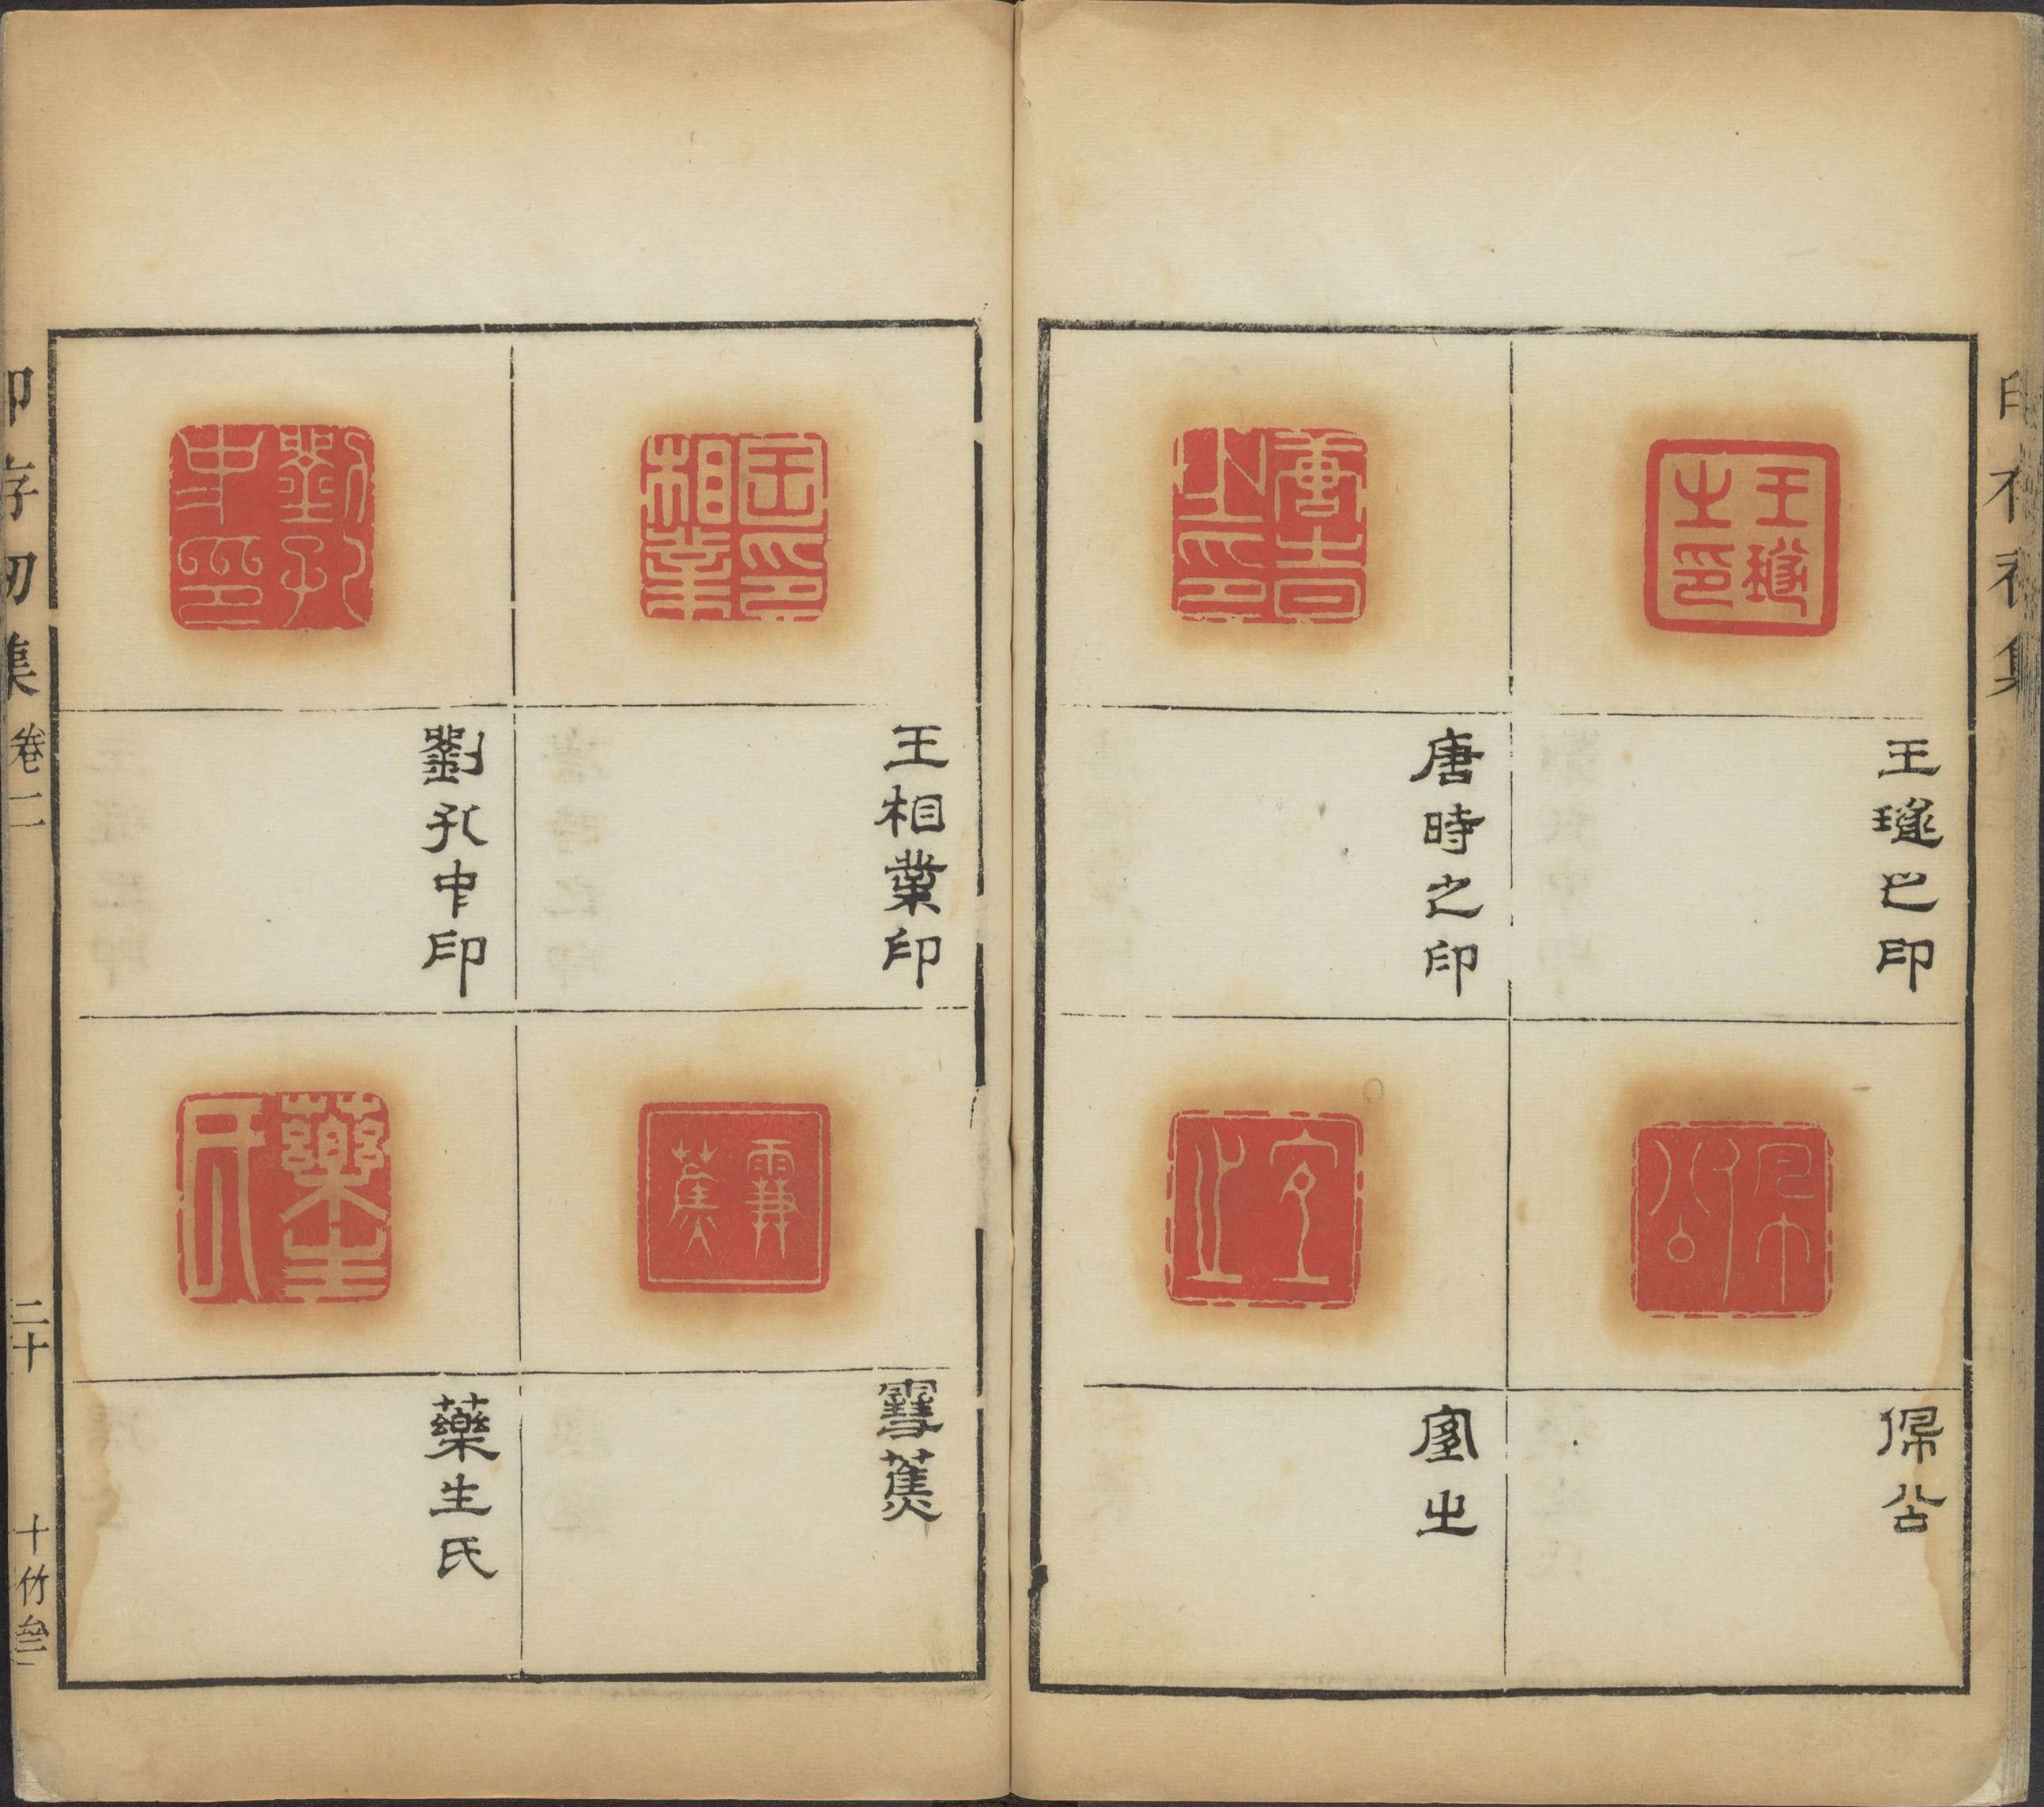 印存初集
王㻽㞢印
唐時之印
㑴公
宜㞢
王相業印
劉孔中印
雪蕉
藥生氏
印存初集
卷二
二十
十竹